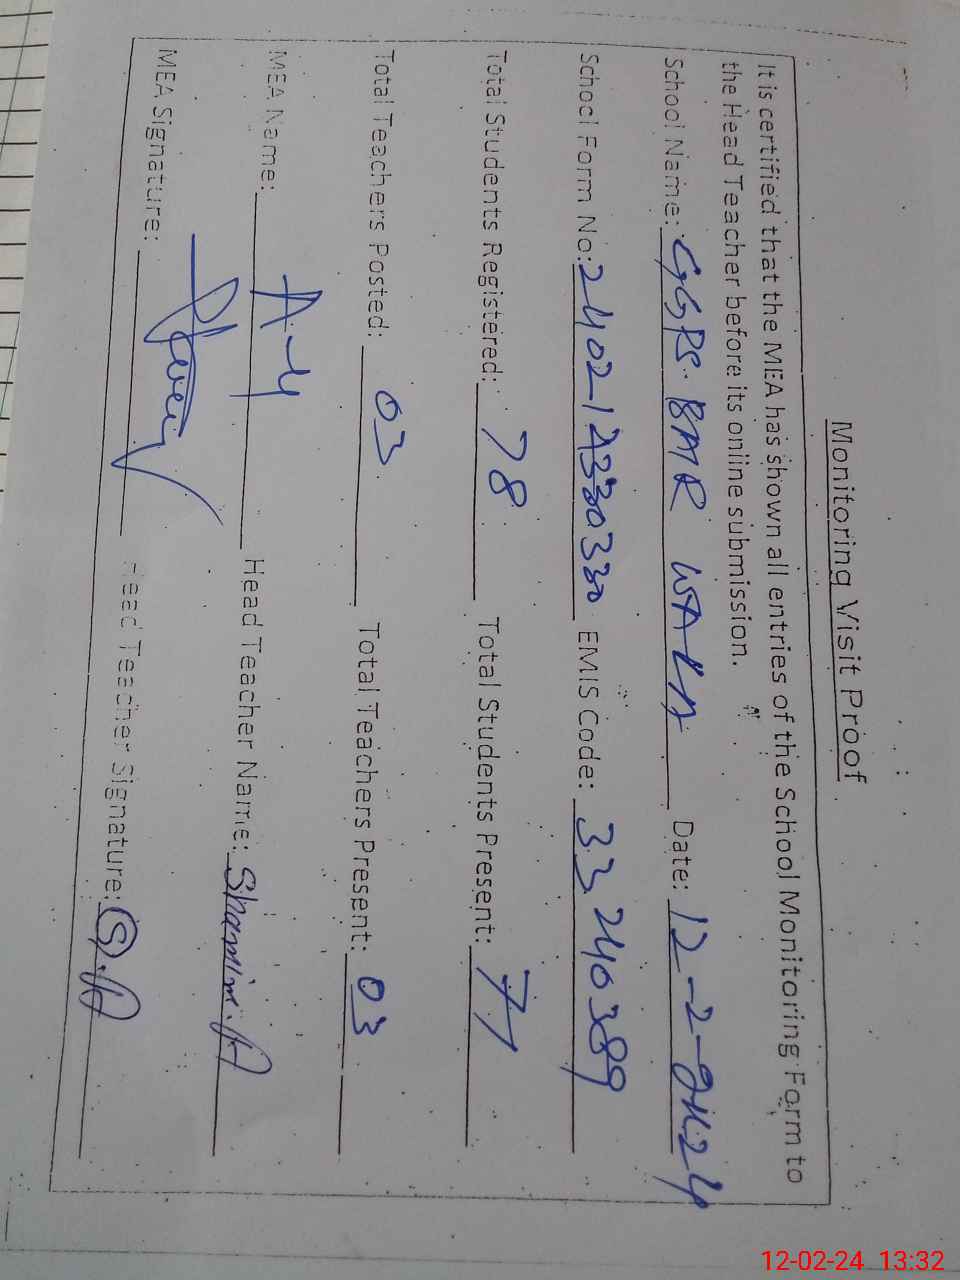 Monitoring Visit Proof
It is certified that the MEA has shown all entries of the School Monitoring Form to
the Head Teacher before its online submission.
School Name: GGPS. BMR Date: 12-2-2024
School Form No: EMIS Code: 33240389
Total Students Registered: 78 Total Students Present:
Total Teachers Posted: 03 Total Teachers Present: 03
MEA Name: Head Teacher Name: Shamim. A
MEA Signature: Head Teacher Signature: S. A
12-02-24 13:32